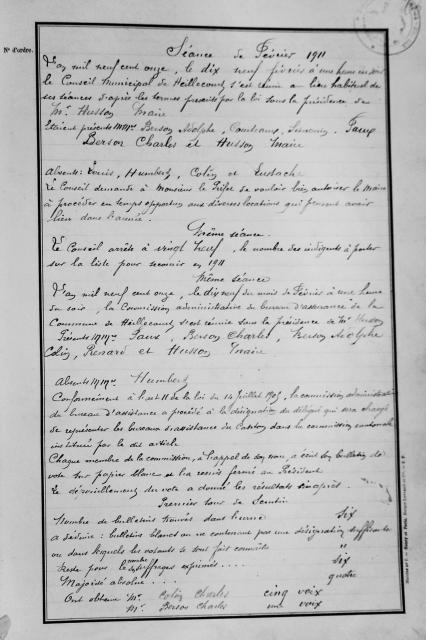 Nº d'ordre.
Séance de Février 1911
L'an mil neuf cent onze, le dix neuf février à une heure du soir
le Conseil Municipal de Heillecourt s'est réuni au lieu habituel de
ses séances d'après les termes prescrits par la loi sous la présidence de
Mr Husson Maire
Étaient présents MM. Berson Adolphe, Faux
Berson Charles et Husson Maire
Absents: Louis, Humbert, Colin et Eustache
Le Conseil demande à Monsieur le Préfet de vouloir bien autoriser le Maire
à procéder en temps opportun aux diverses locations qui peuvent avoir
lieu dans l'année.
Même séance.
Le Conseil arrête à vingt neuf, le nombre des indigents à porter
sur la liste pour secourir en 1911
Même séance
L'an mil neuf cent onze, le dix neuf du mois de Février à une heure
du soir, la Commission administrative du bureau d'assurance de la
Commune de Heillecourt s'est réunie sous la présidence de Mr Husson
Présents MM. Faux, Berson Charles, Berson Adolphe
Colin, Renard et Husson Maire
Absents MM. Humbert
Conformément à l'art 11 de la loi du 14 Juillet 1905, la commission administrative
du bureau d'assistance a procédé à la désignation du délégué qui sera chargé
de représenter les bureaux d'assistance du Canton dans la commission cantonale
instituée par le dit article
Chaque membre de la commission, à l'appel de son nom, a écrit son bulletin de
vote sur papier blanc et l'a remis fermé au Président
Le dépouillement du vote a donné les résultats ci-après.
Premier tour de Scrutin
Nombre de bulletins trouvés dans l'urne six
A déduire: bulletins blancs ou ne contenant pas une désignation suffisante
ou dans lesquels les votants se sont fait connaître "
Reste pour le nombre de suffrages exprimés.... six
Majorité absolue.... quatre
Ont obtenu Mr. Colin Charles cinq voix
Mr. Berson Charles une voix